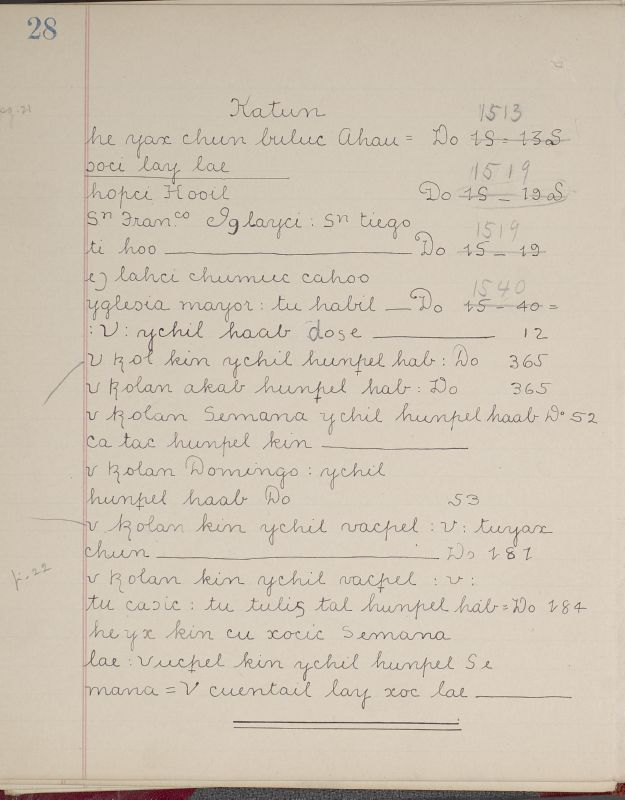 28
Katun
1513
he yax chun buluc Ahau = Do 15 = 13
ɔoci lay lae
1519
hopci Hooil Do 15 _ 19
Sn Fran.co Yglayci : Sn tiego
1519
ti hoo Do 15 _ 19
lahci chumuc cahoo
1540
yglesia mayor : tu habil _ Do 15 - 40 =
: V : ychil haab dose 12
v kol kin ychil hunpel hab : Do 365
v kolan akab hunpel hab : Do 365
v kolan Semana ychil hunpel haab Do 52
ca tac hunpel kin
v kolan Domingo : ychil
hunpel haab Do 53
v kolan kin ychil vacpel : v : tuyax
chun Do 181
v kolan kin ychil vacpel : v :
p. 22
tu caɔic : tu tulis tal hunpel hab = Do 184
he yx kin cu xocic Semana
lae : vucpel kin ychil hunpel Se
mana = V cuentail lay xoc lae